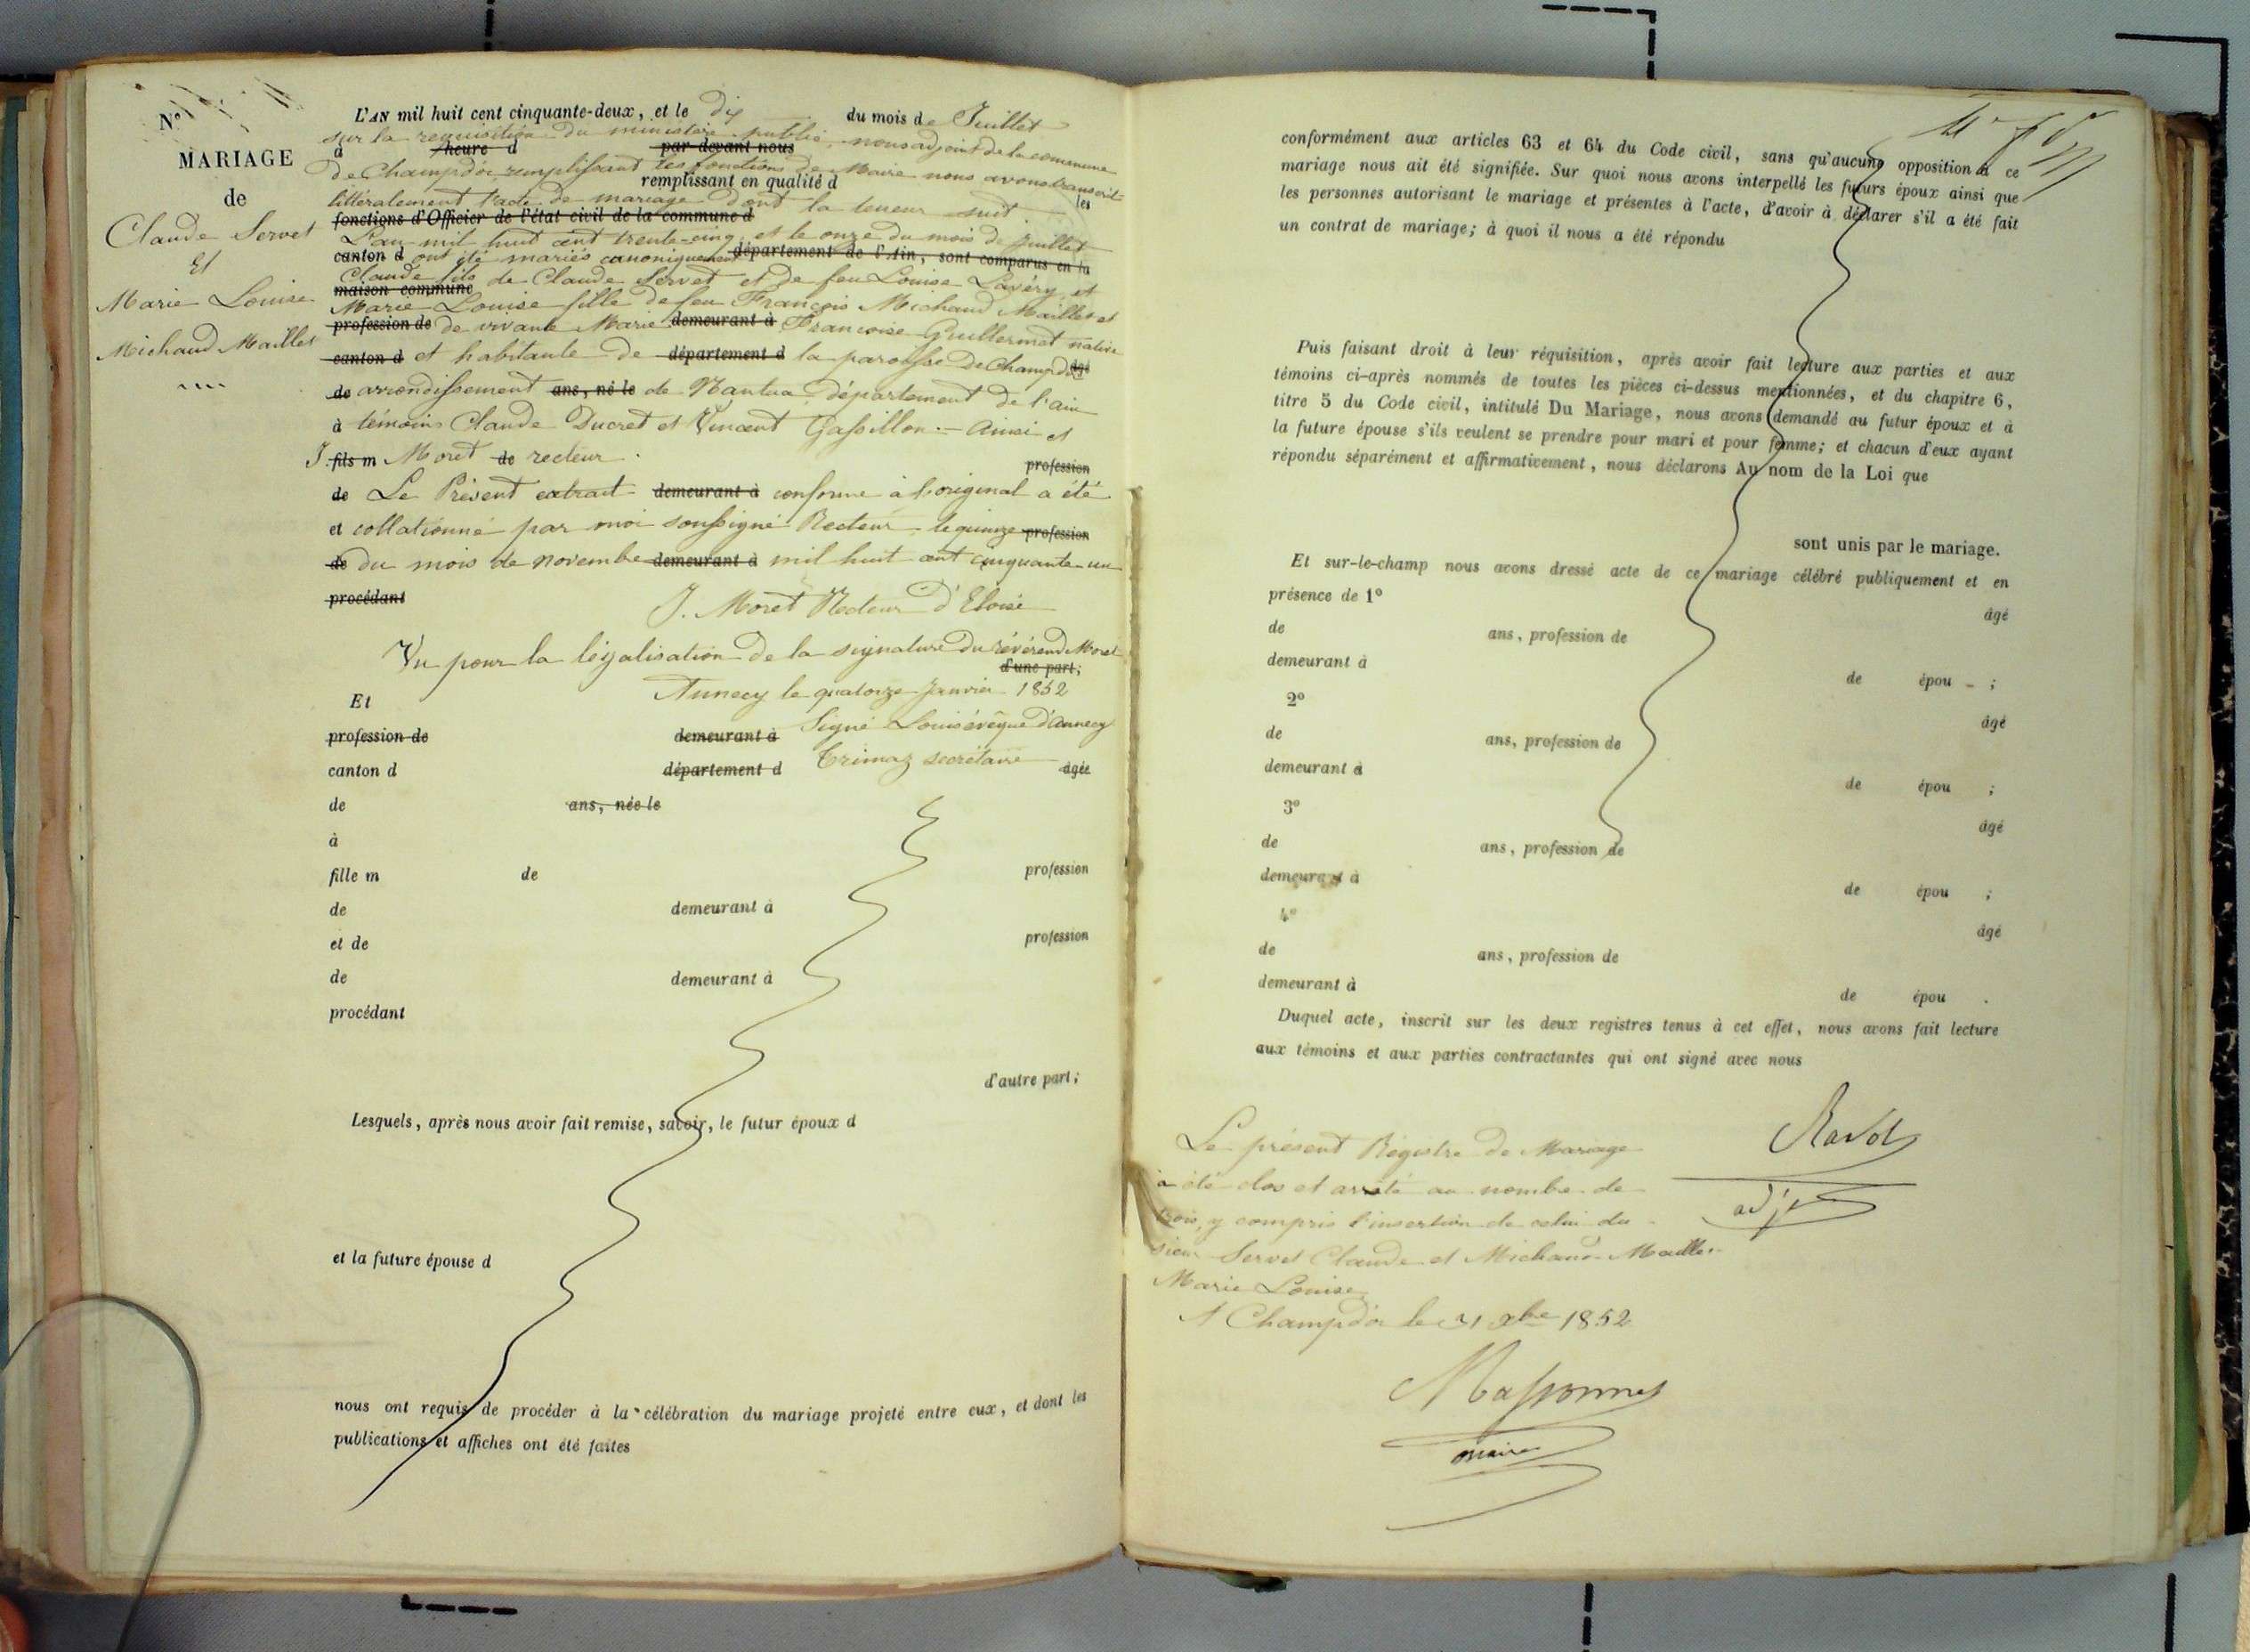 N°
MARIAGE
de
Claude Servet
Et
Marie Louise
Michaud Maillet
L'AN mil huit cent cinquante-deux, et le dix du mois de Juillet
sur la requisition du ministère public, nous adjoint de la commune
à heure d par devant nous
de Champdor remplissant les fonctions de Maire nous avons transcrit
remplissant en qualité d les
littéralement l'acte de mariage dont la teneur suit
fonctions d'Officier de l'état civil de la commune d
L'an mil huit cent trente-cinq, et le onze du mois de juillet
canton d ont été mariés canoniquement département de l'Ain, sont comparus en la
Claude fils de Claude Servet et de feu Louise Lavéry et
maison commune
Marie Louise fille de feu François Michaud Maillet et
profession de de vivante Marie demeurant à Françoise Guillermet native
canton d et habitante de département d la paroisse de Champdor âgé
de arrondissement ans, né le de Nantua département de l'ain
à témoins Claude Ducret et Vincent Gassillon. Ainsi et
J. fils m Moret de recteur.
profession
de Le Présent extrait demeurant à conforme à l'original a été
et collationné par moi soussigné Recteur le quinze profession
de du mois de novembre demeurant à mil huit cent cinquante-un
procédant
J. Moret Recteur d'Eloise
Vu pour la légalisation de la signature du révérend Moret
d'une part;
Annecy le quatorze Janvier 1852
Et
Signé Louis évêque d'Annecy
profession de demeurant à
canton d département d âgée
secrétaire
de ans, née le
à
fille m de profession
de demeurant à
et de profession
de demeurant à
procédant
d'autre part;
Lesquels, après nous avoir fait remise, savoir, le futur époux d
et la future épouse d
nous ont requis de procéder à la célébration du mariage projeté entre eux, et dont les
publications et affiches ont été faites
conformément aux articles 63 et 64 du Code civil, sans qu'aucune opposition à ce
mariage nous ait été signifiée. Sur quoi nous avons interpellé les futurs époux ainsi que
les personnes autorisant le mariage et présentes à l'acte, d'avoir à déclarer s'il a été fait
un contrat de mariage; à quoi il nous a été répondu
Puis faisant droit à leur réquisition, après avoir fait lecture aux parties et aux
témoins ci-après nommés de toutes les pièces ci-dessus mentionnées, et du chapitre 6,
titre 5 du Code civil, intitulé Du Mariage, nous avons demandé au futur époux et à
la future épouse s'ils veulent se prendre pour mari et pour femme; et chacun d'eux ayant
répondu séparément et affirmativement, nous déclarons Au nom de la Loi que
sont unis par le mariage.
Et sur-le-champ nous avons dressé acte de ce mariage célébré publiquement et en
présence de 1°
âgé
de ans, profession de
demeurant à
de épou ;
2°
âgé
de ans, profession de
demeurant à
de épou ;
3°
âgé
de ans, profession de
demeurant à
de épou ;
4°
âgé
de ans, profession de
demeurant à
de épou .
Duquel acte, inscrit sur les deux registres tenus à cet effet, nous avons fait lecture
aux témoins et aux parties contractantes qui ont signé avec nous
Le présent Régistre de Mariage
a été clos et arrêté au nombre de
adjt
trois, y compris l'insertion de celui du
sieur Servet Claude et Michaud Maillet
Marie Louise
A Champdor le 31 xbre 1852
Massonnet
maire